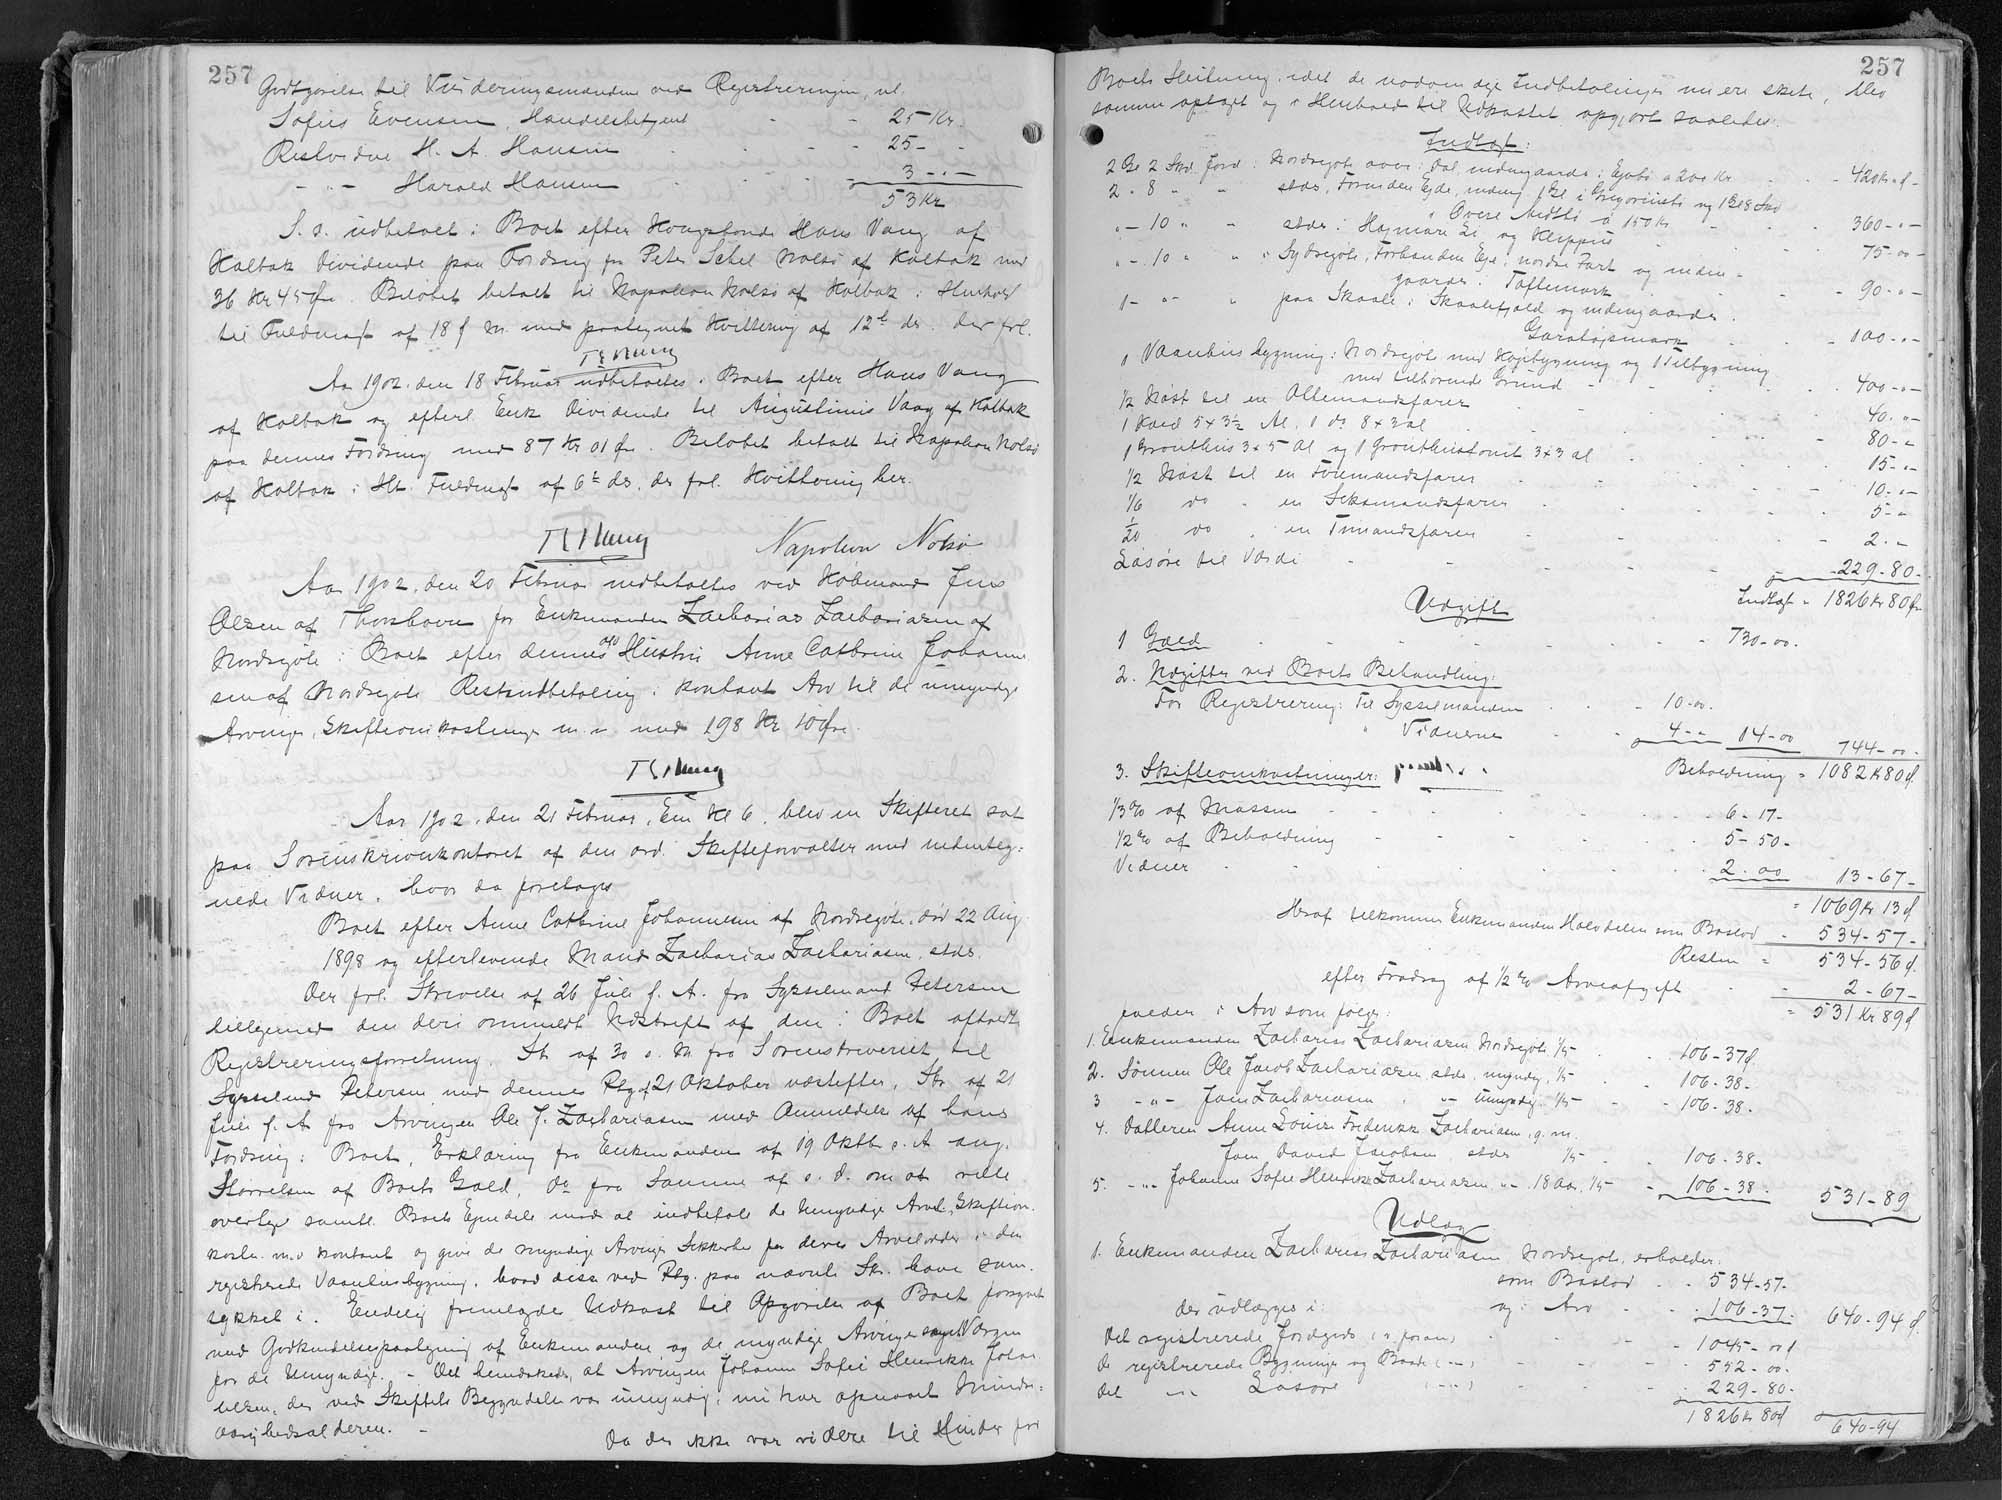 257
Godtgørelse til Vurderingsmændene ved Registreringen, nl.
Sofus Evensen, Handelsbetjent - - 25 Kr.
Restvidne H. A. Hansen - - - - 25 - -
- " - Harald Hansen - - - 3 - " -
53 Kr
S. D. udbetalt i Boet efter Kongsbonde Hans Vang af
Kaltbak Dividende paa Fordring fra Peter Schel Nolsø af Kaltbak med
36 Kr 45 Øre. Beløbet betalt til Napoleon Nolsø af Kaltbak i Henhold
til Fuldmagt af 18 f. M. med paategnet Kvittering af 12te ds. der frl.
Aar 1902, den 18 Februar udbetaltes i Boet efter Hans Vang
af Kaltbak og efterl. Enke Dividende til Augustinus Vang af Kaltbak
paa dennes Fordring med 87 Kr 01 Øre. Beløbet betalt til Napoleon Nolsø
af Kaltbak i Ht. Fuldmagt af 6te ds. der frl. Kvittering her.
Napoleon Nolsø
Aar 1902, den 20 Februar indbetaltes ved Købmand Jens
Olsen af Thorshavn for Enkemanden Zacharias Zachariasen af
Nordregøte i Boet efter dennes afd Hustru Anne Cathrine Johanne
sen af Nordregøte Restindbetaling i kontant Arv til de umyndige
Arvinger, Skifteomkostninger m. v. med 198 Kr 10 Øre.
Aar 1902, den 21 Februar, Em Kl 6, blev en Skifteret sat
paa Sorenskriverkontoret af den ord. Skifteforvalter med underteg=
nede Vidner, hvor da foretages
Boet efter Anne Cathrine Johannesen af Nordregøte, død 22 Aug.
1898 og efterlevende Mand Zacharias Zachariasen, stds.
Der frl. Skrivelse af 26 Juli f. A. fra Sysselmand Petersen
tilligemed den deri ommeldt Udskrift af den i Boet afholdte
Registreringsforretning, Sk. af 30 s. M. fra Sorenskriveriet til
Sysselmd Petersen med dennes Ptg af 21 Oktober næstefter, Sk. af 21
Juli f. A. fra Arvingen Ole J. Zachariasen med Anmeldelse af hans
Fordring i Boet, Erklæring fra Enkemanden af 19 Oktb. s. A. ang.
Størrelsen af Boets Gæld, do fra Samme af s. D. om at ville
overtage samtl. Boets Ejendele mod at indbetale de Umyndige Arvel, Skifteom.
kostn. m.v kontant og give de myndige Arvinger Sikkerhed for deres Arvelodder i den
registrerede Vaanhusbygning, hvad disse ved Ptg. paa nævnte Sk. have sam.
tykket i. Endelig fremlagdes Udkast til Opgørelse af Boet forsynet
med Godkendelsespaategning af Enkemanden og de myndige Arvinger samt Værgen
for de Umyndige. - Det bemærkedes, at Arvingen Johanne Sofie Henrikke
, der ved Skiftets Begyndelse var umyndig, nu har opnaaet Mindre=
aarighedsalderen. -
Da der ikke var videre til Hinder for
257
Boets Slutning, idet de nødvendige Indbetalinger nu ere skete, blev
samme optaget og i Henhold til Udkastet opgjort saaledes:
Indtægt:
2 Gl 2 Skd Jord i Nordregøte over i Dal, indengaards i Ejebø a 200 Kr. - - 420 Kr " d -
2 - 8 " " stds, Foruden Ejde, indeng 1 Gl i Gregoriustø og 1 Gl 8 Skd
i Øvere Midtstø a 150 Kr - - - 360 - " -
" - 10 " " stds i Højmare Ei og Kleppus - - 75 - 00 -
" - 10 " " i Sydregøte, Forhanden Eje, nordre Part og inden=
gaards i Toftemark - - - 90 - " -
1 - " - " paa Skaale i Skaalefjeld og indengaards i
Garatøgsmark - - 100 - " -
1 Vaanhusbygning i Nordregøte med Højbygning og 1 Tilbygning
med tilhørende Grund - - - 400 - " -
1/2 Nøst til en Ottemandsfarer - - - 40 - " -
1 Hjald 5 x 3 1/2 Al, 1 do 8 x 3 al - - - 80 - "
1 Grouthus 3 x 5 al og 1 Grouthustomt 3 x 3 al - - - 15 - " -
1/2 Nøst til en Firemandsfarer - - - 10 - " -
1/6 do " en Seksmandsfarer - - - 5 - "
1/20 do " en Timandsfarer - - - 2 - "
Løsøre til Værdi - - - 229 - 80 -
Indtægt = 1826 Kr 80 Øre
Udgift
1 Gæld - - - - - - 730 - 00.
2. Udgifter ved Boets Behandling:
For Registrering: Til Sysselmanden - - - 10 - 00.
" Vidnerne - - 4 - " 14 - 00 744 - 00 -
Beholdning = 1082 Kr 80 d.
3. Skifteomkostninger:
1/3 % af Massen - - - - 6 - 17 -
1/2 % af Beholdning - - - - 5 - 50 -
Vidner - - - - 2 . 00 13 - 67 -
= 1069 Kr 13 d
Heraf tilkommer Enkemanden Halvdelen som Boslod - 534 - 57 -
Resten = 534 - 56 d.
efter Fradrag af 1/2 % Arveafgift - 2 - 67 -
= 531 Kr 89 d
i Arv som følger:
1. Enkemanden Zacharias Zachariasen Nordregøte 1/5 - - 106 - 37 d.
2. Sønnen Ole Jacob Zachariasen, stds, myndig, 1/5 - - 106 - 38 -
3 - " - Joen Zachariasen, " - Umyndig. 1/5 - - 106 - 38 .
4. Datteren Anne Louise Frederikke Zachariasen, g. m.
Joen David Jacobsen stds 1/5 - - 106 - 38 -
5. - " - Johanne Sofie Henrikke Zachariasen " - 18 Aar, 1/5 - 106 - 38 . 531 - 89
Udlæg
1. Enkemanden Zacharias Zachariasen Nordregøte erholder:
som Boslod - - 534 - 57 -
og i Arv - - 106 - 37 - 640 - 94 d.
der udlægges i:
Det registrerede Jordgods (s. foran) - - - 1045 - 00 d
de registrerede Bygninger og Baade ( - " - ) - - - 552 - 00 -
Det - " - Løsøre ( - " - ) - - - 229 - 80 -
1826 Kr 80 d
640 - 94